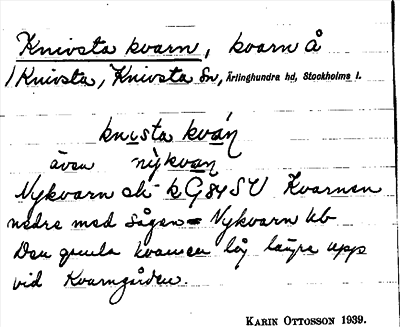 Knivsta kvarn, kvarn å
/Knivsta, Knivsta Sn, Ärlinghundra hd, Stockholms l.
knista kván
även nỳkvan
Nykvarn ek kG84SV Kvarnen
nedre med Sågen = Nykvarn kb
Den gamla kvarnen låg längre upp
vid Kvarngården.
KARIN OTTOSSON 1939.